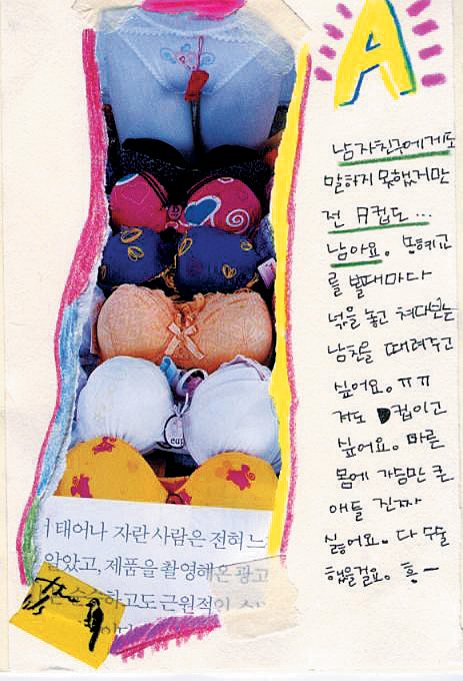 A
남자친구에게도
말하지 못했지만
전 A컵도...
남아요. 한혜교
를 볼때마다
넋을 놓고 쳐다보는
남친을 때려주고
싶어요. ㅠㅠ
저도 D컵이고
싶어요. 마른
몸에 가슴만 큰
애들 진짜
싫어요. 다 수술
했을걸요. 흥-
태어나 자란 사람은 전혀 느
알았고, 제품을 촬영해온 광고
순수하고도 근원적인